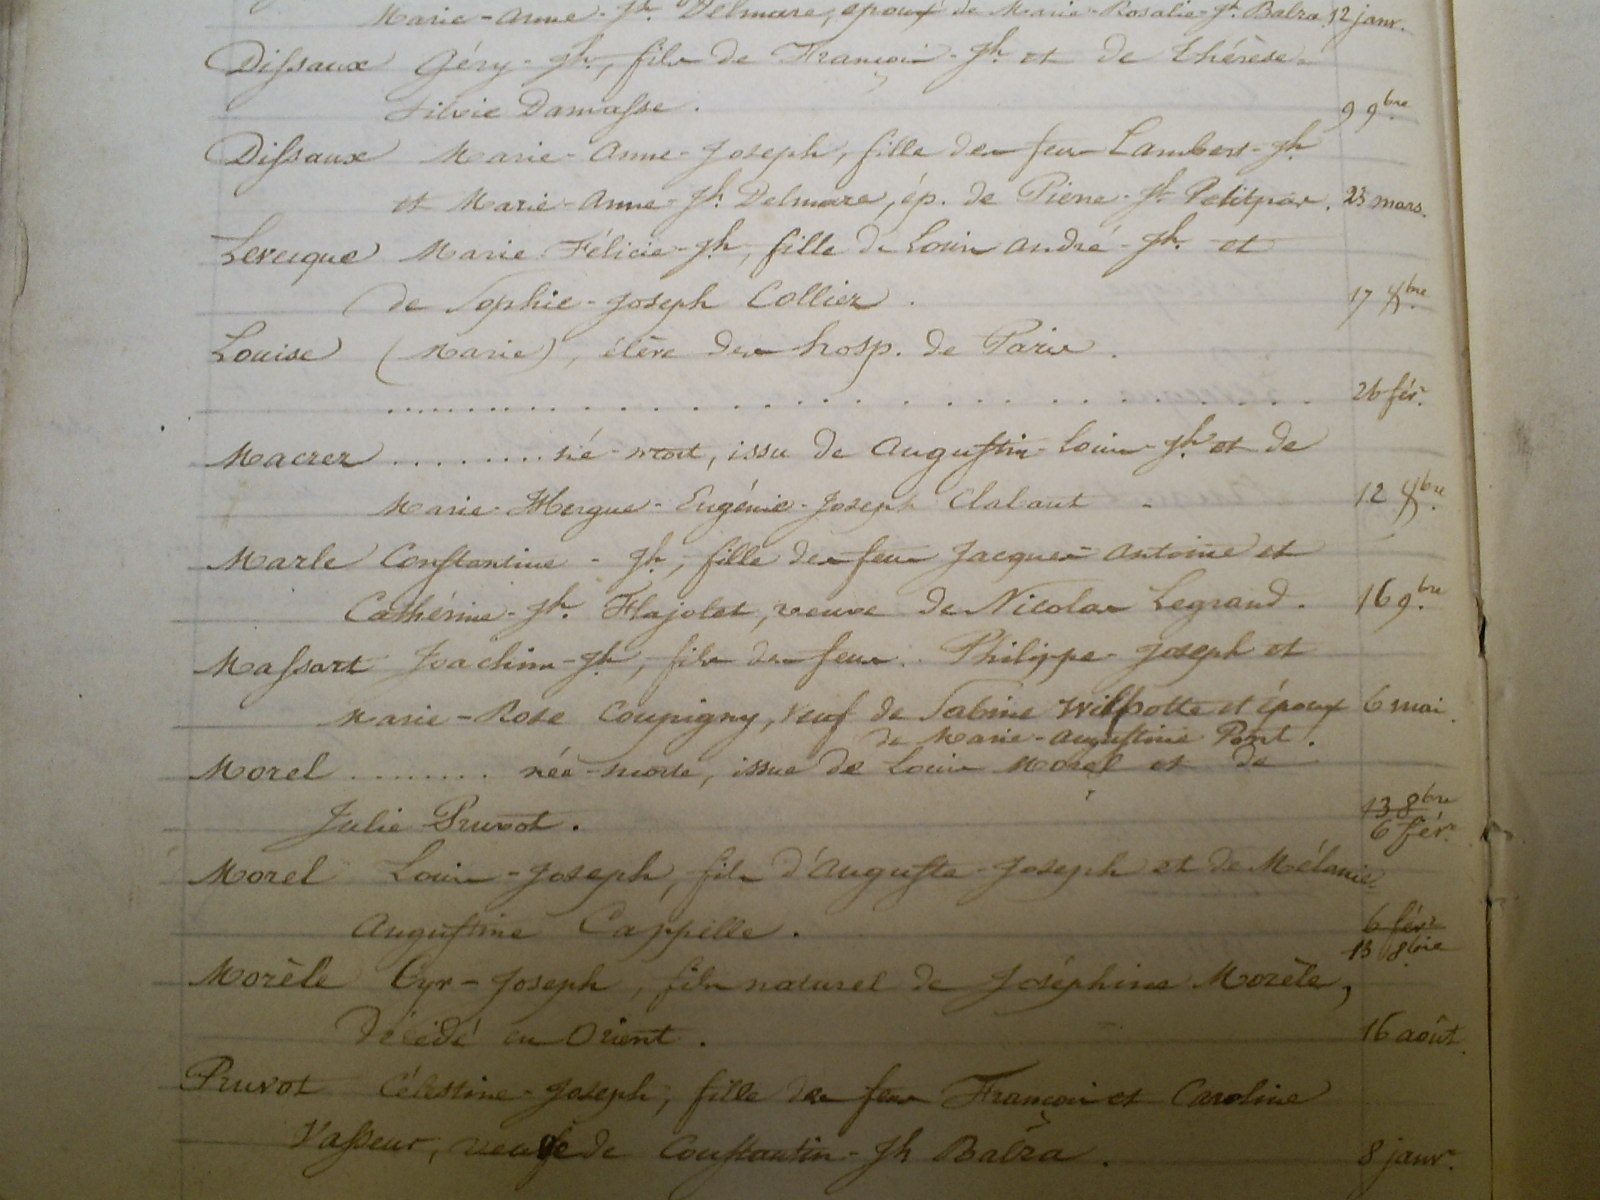 Marie-Anne-Jh. Delmare, époux de Marie-Rosalie-Jh. Balza 12 janv.
Dissaux Géry-Jh, fils de François-Jh et de Thérèse-
Silvie Damasse. 9 9bre
Dissaux Marie-Anne-Joseph, fille des feus Lambert-Jh
et Marie-Anne-Jh. Delmare, ép. de Pierre-Jh Petitpar. 23 mars.
Levecque Marie-Félicie-Jh, fille de Louis André-Jh. et
de Sophie-Joseph Collier. 17
Louise (Marie), élève des hosp. de Paris.
26 fév.
Macrez ........ né-mort, issu de Augustin-Louis-Jh et de
Marie-Eugénie-Joseph Clabaut 12
Marle Constantine-Jh, fille des feus Jacques Antoine et
Cathérine-Jh. Flajolet, veuve de Nicolas Legrand. 16 9.bre
Massart Joachim-Jh, fils des feus Philippe-Joseph et
Marie-Rose Coupigny, veuf de Sabine et époux 6 mai.
de Marie-Augustine Pont.
Morel ........ née-morte, issue de Louis Morel et de
Julie Pruvot. 13 8bre
6 fév.
Morel Louis-Joseph, fils d'Auguste-Joseph et de Mélanie-
Augustine Cappelle. 6 fév.
13 8bre
Morèle Cyr-Joseph, fils naturel de Joséphine Morèle,
décédé en Orient. 16 août.
Pruvot Célestine-Joseph, fille des feus François et Caroline
Vasseur, veuve de Constantin-Jh Balza. 8 janv.